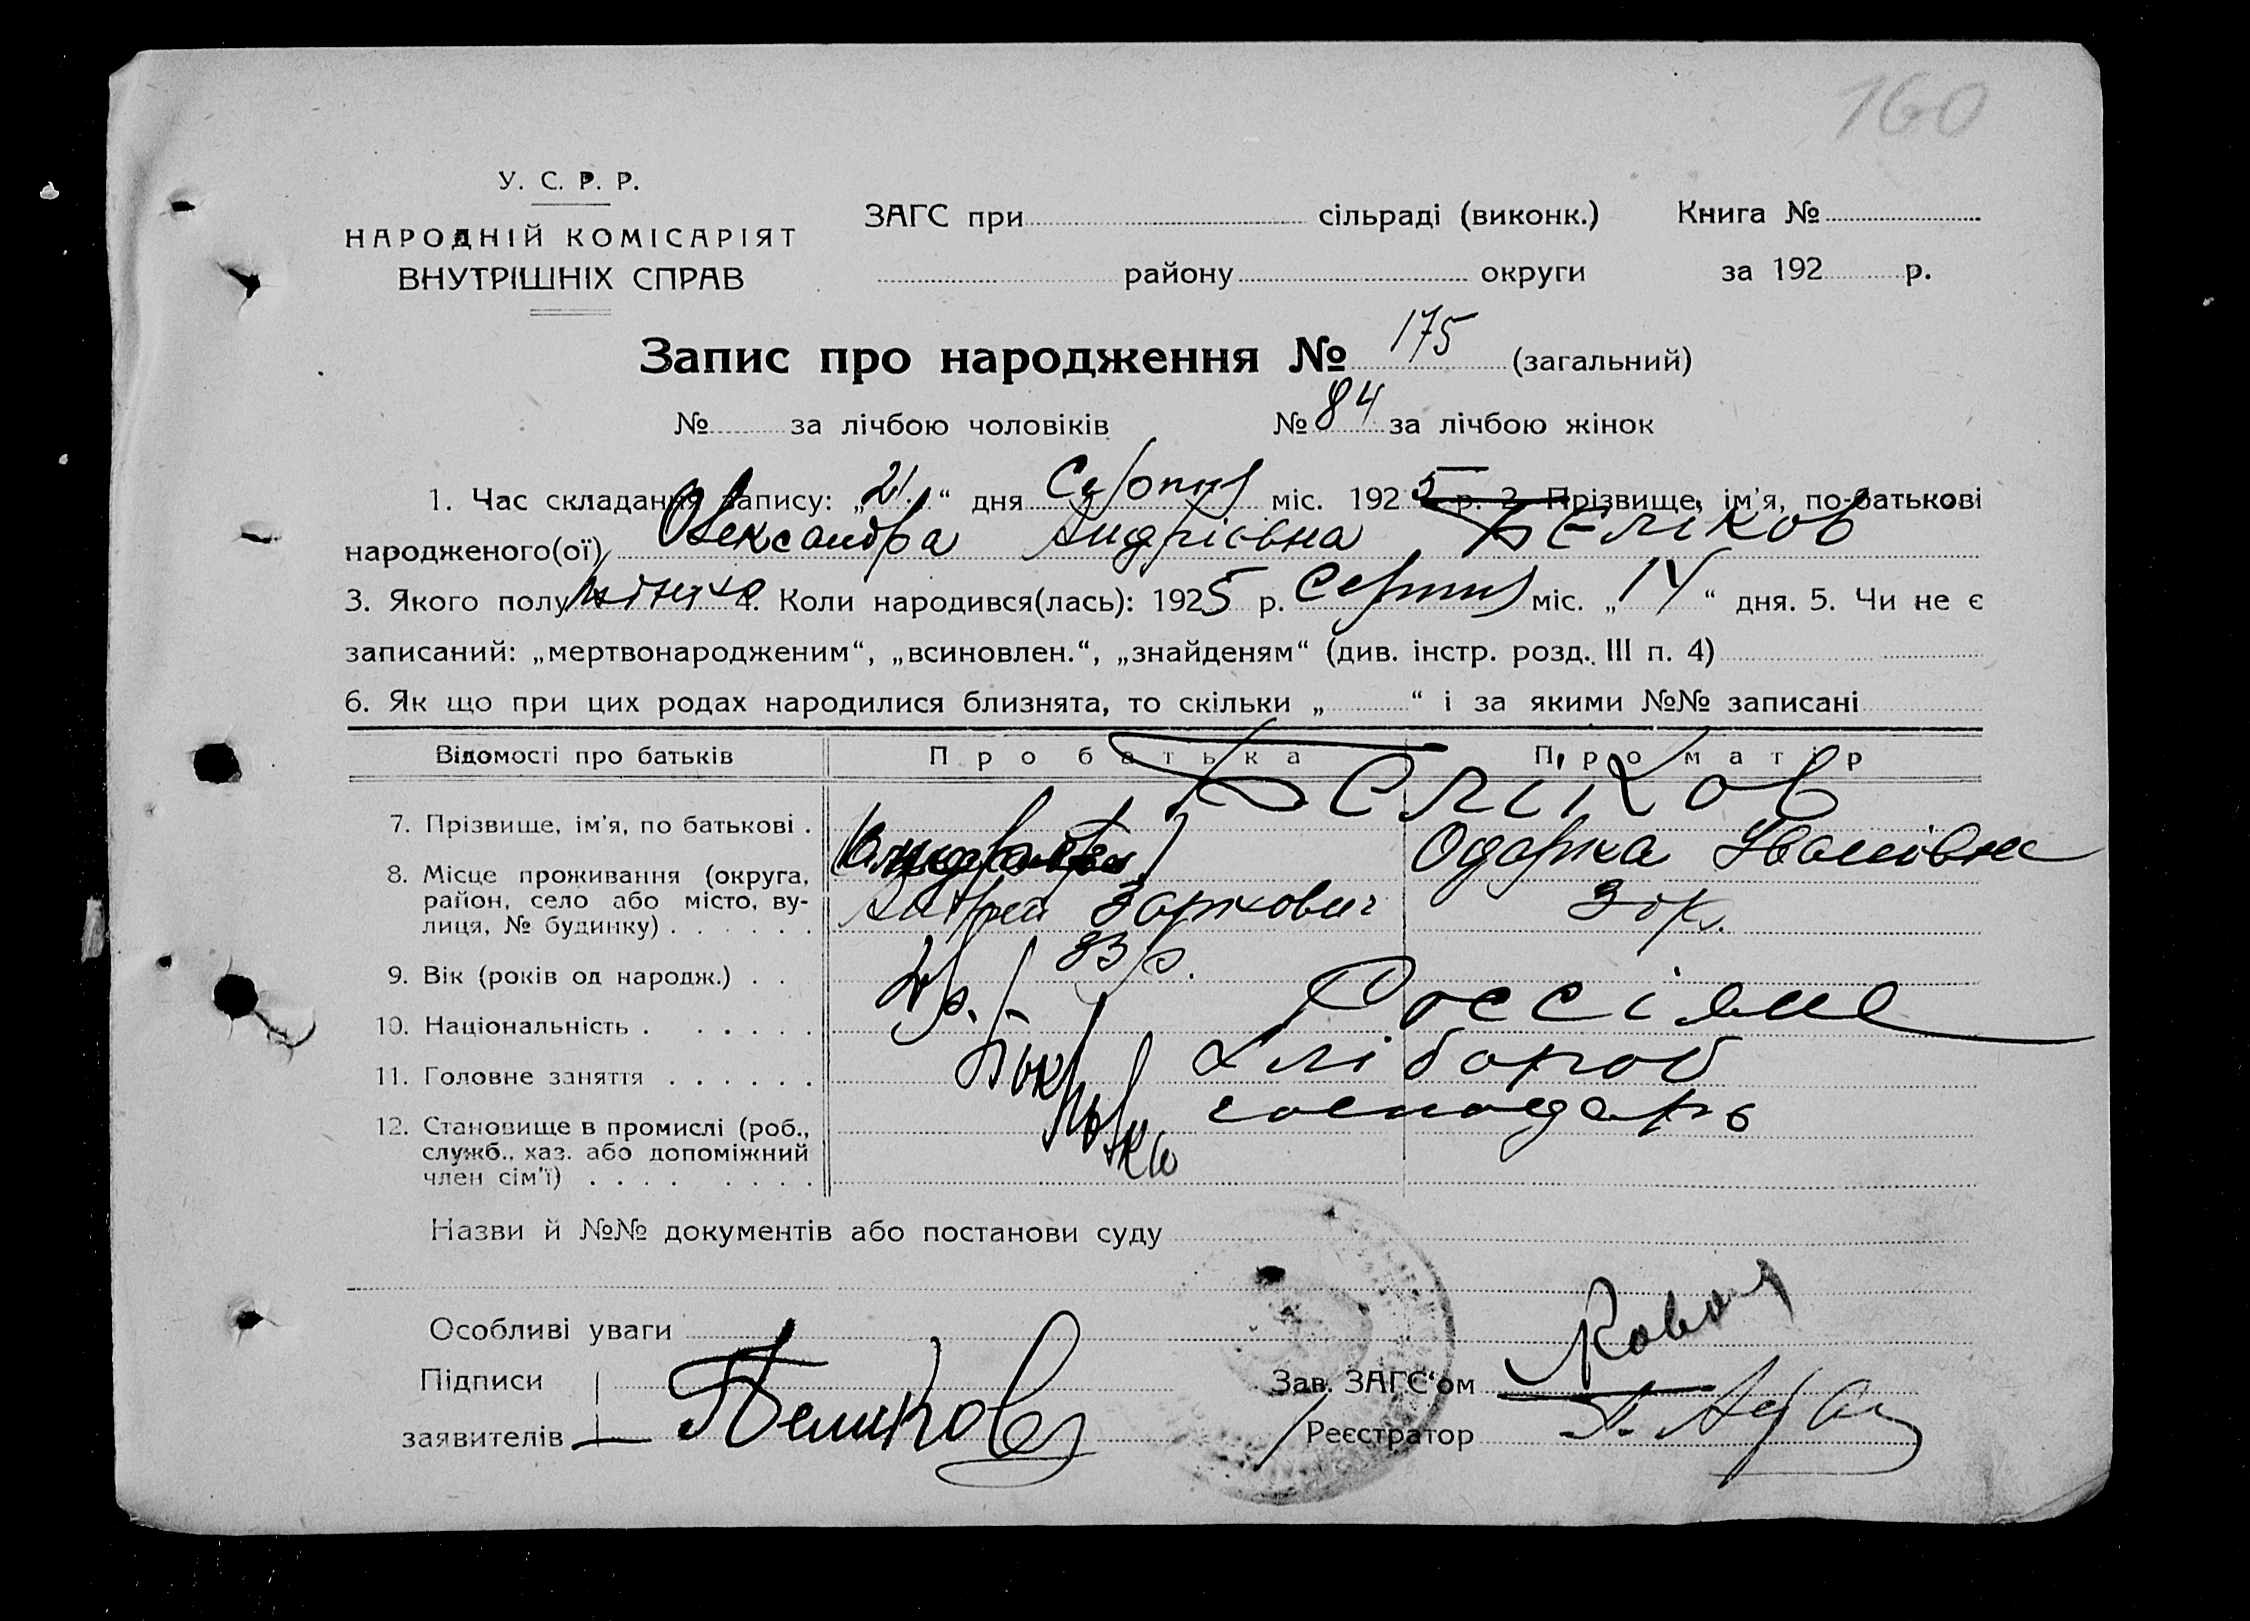 160
У. С. Р. Р.
НАРОДНІЙ КОМІСАРІЯТ
ВНУТРІШНІХ СПРАВ
ЗАГС при сільраді (виконк.) Книга №
району округи за 192 р.
Запис про народження № 175 (загальний)
№ за лічбою чоловіків № 84 за лічбою жінок
1. Час складання запису: „21“ дня Серпня міс. 1925 р. 2. Прізвище, ім'я, по-батькові
народженого(ої) Олександра Андрієвна Беліков
3. Якого полу жіноч 4. Коли народився(лась): 1925 р. Серпня міс. „14“ дня. 5. Чи не є
записаний: „мертвонародженим“, „всиновлен.“, „знайденям“ (див. інстр. розд. III п. 4)
6. Як що при цих родах народилися близнята, то скільки „ “ і за якими №№ записані
Відомості про батьків Про батька Про матір
7. Прізвище, ім'я, по батькові . Беліков
Одарка Івановна
8. Місце проживання (округа,
район, село або місто, ву-
лиця, № будинку) . . . . . .
Андрей
9. Вік (років од народж.) . . 33 р.
10. Національність . . . . . . Россіяне
11. Головне заняття . . . . . . хлібороб
12. Становище в промислі (роб., господарь
служб., хаз. або допоміжний
член сім'ї) . . . . . . . .
Назви й №№ документів або постанови суду
Особливі уваги
Підписи
заявителів Беликов
Зав. ЗАГС'ом
Реєстратор